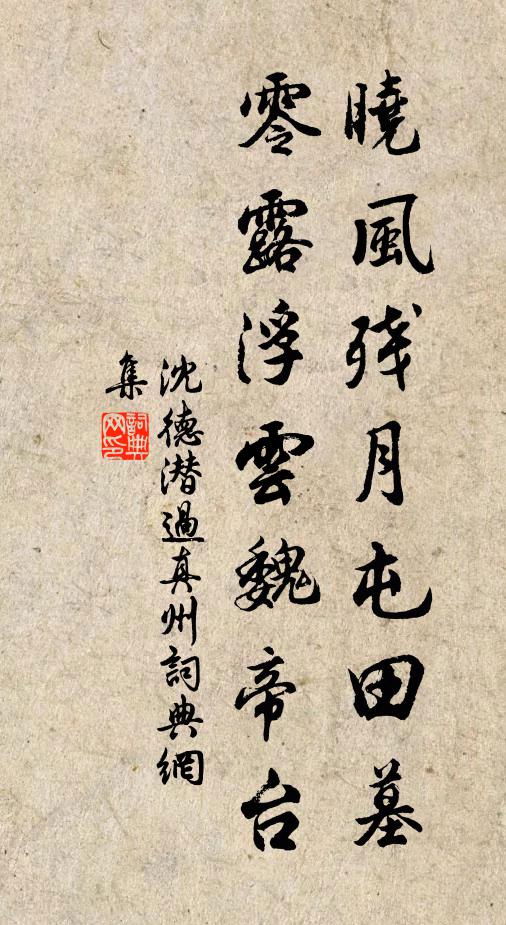 曉風残月屯田墓
零露浮雲魏帝台
沈德潜過真州詞典網
集
詞典
网印